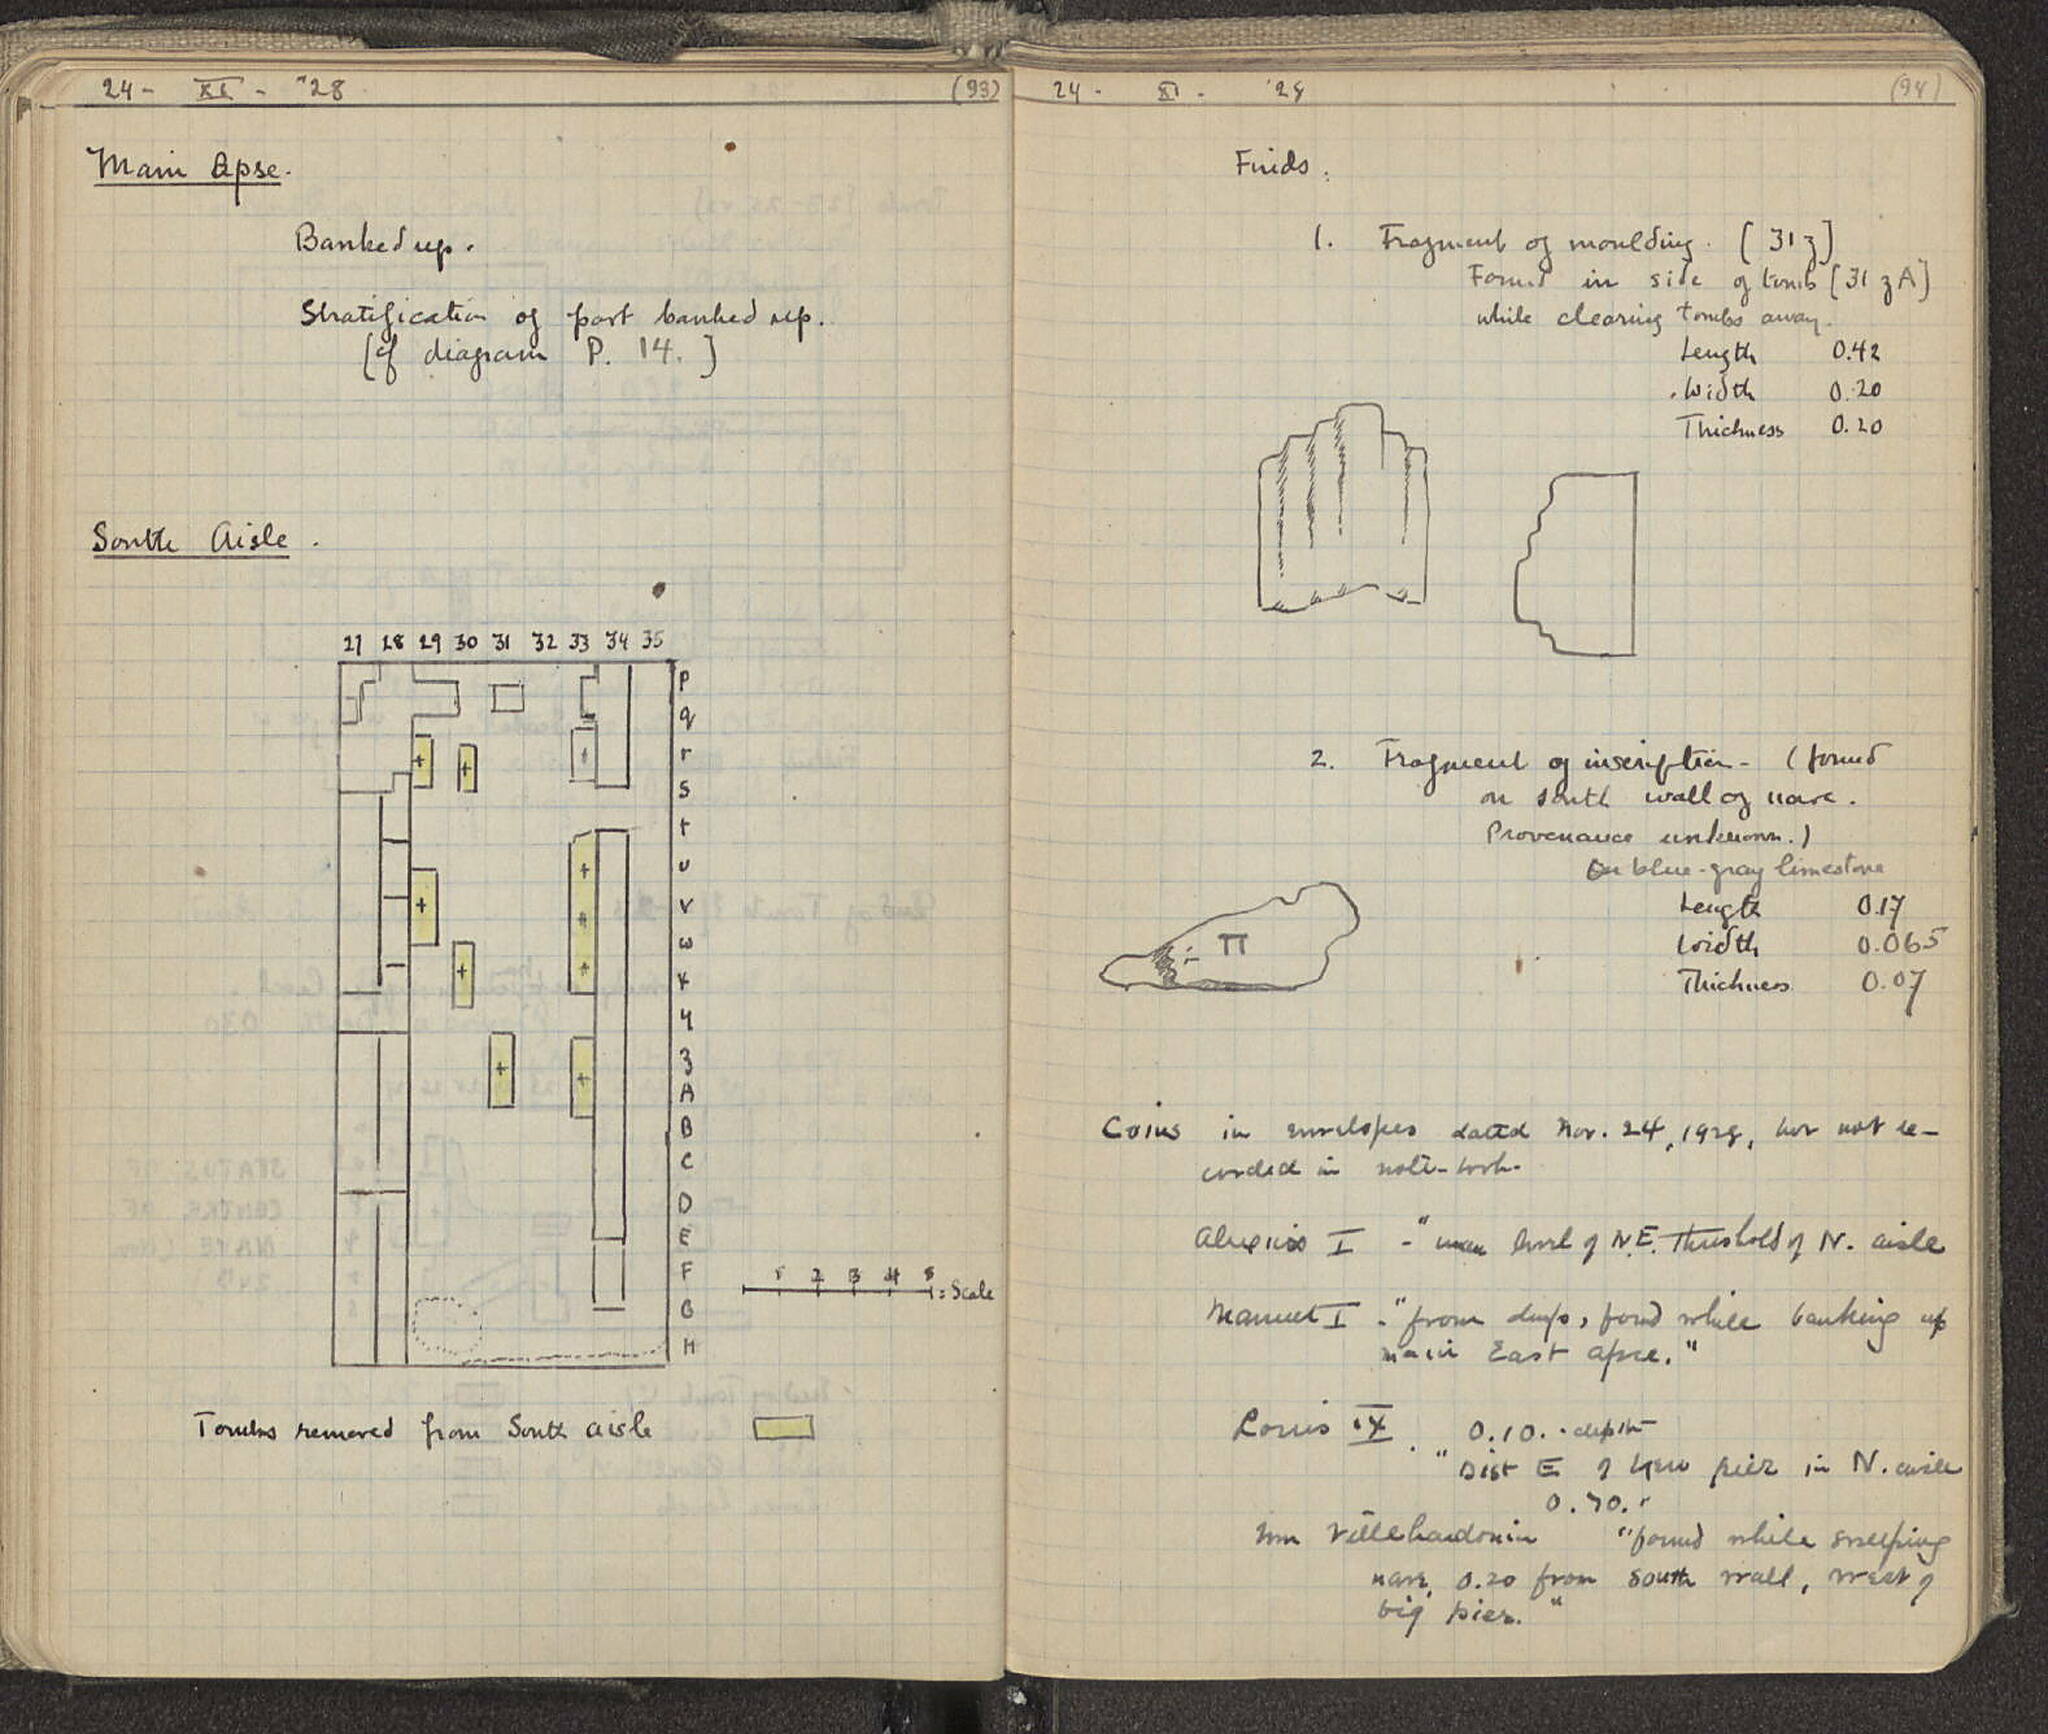 24 - XI - '28 (93)
Main Apse.
Banked up.
Stratification of part banked up.
[cf diagram P. 14.]
South Aisle.
27 28 29 30 31 32 33 34 35
P
q
r
s
t
u
v
w
x
y
z
A
B
C
D
E
F
G
H
1 2 3 4 5
= Scale
Tombs removed from South aisle
24 - XI - '28 (94)
Finds:
1. Fragment of moulding. [31 z]
Found in side of tomb [31 z A]
while clearing tombs away.
Length 0.42
Width 0.20
Thickness 0.20
2. Fragment of inscription - (found
on south wall of nave.
Provenance unknown.)
On blue-gray limestone
Length 0.17
Width 0.065
Thickness 0.07
Π
Coins in envelopes dated Nov. 24, 1928, but not re-
corded in note-book.
Alexius I - " level of N.E. Threshold of N. aisle
Manuel I - "from dump, found while banking up
main East apse."
Louis IX. 0.10. depth
"Dist E of new pier in N. aisle
0.70."
Wm Villehardouin "found while sweeping
nave, 0.20 from south wall, west of
big pier."